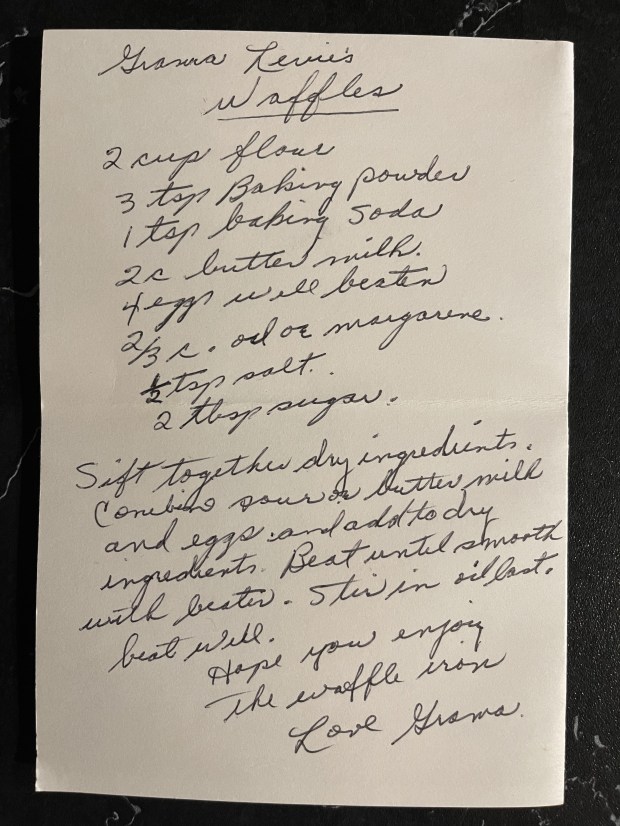 Grama Levie's
Waffles
2 cup flour
3 tsp Baking powder
1 tsp baking Soda
2c butter milk.
4 eggs well beaten
2/3 c. oil or margarene.
1/2 tsp salt..
2 tbsp sugar.
Sift together dry ingredients.
Combine sour or butter milk
and eggs and add to dry
ingredients. Beat until smooth
with beater. Stir in oil last.
beat well.
Hope you enjoy
The waffle iron
Love Grama.